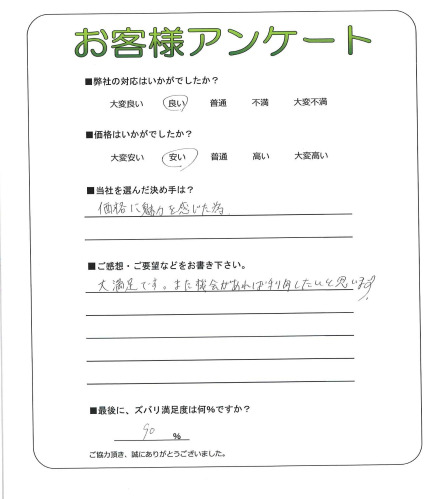 お客様アンケート
■弊社の対応はいかがでしたか?
大変良い 良い 普通 不満 大変不満
■価格はいかがでしたか?
大変安い 安い 普通 高い 大変高い
■当社を選んだ決め手は?
価格に魅力を感じた為
■ご感想・ご要望などをお書き下さい。
大満足です。また機会があれば利用したいと思います!
■最後に、ズバリ満足度は何%ですか?
90 %
ご協力頂き、誠にありがとうございました。